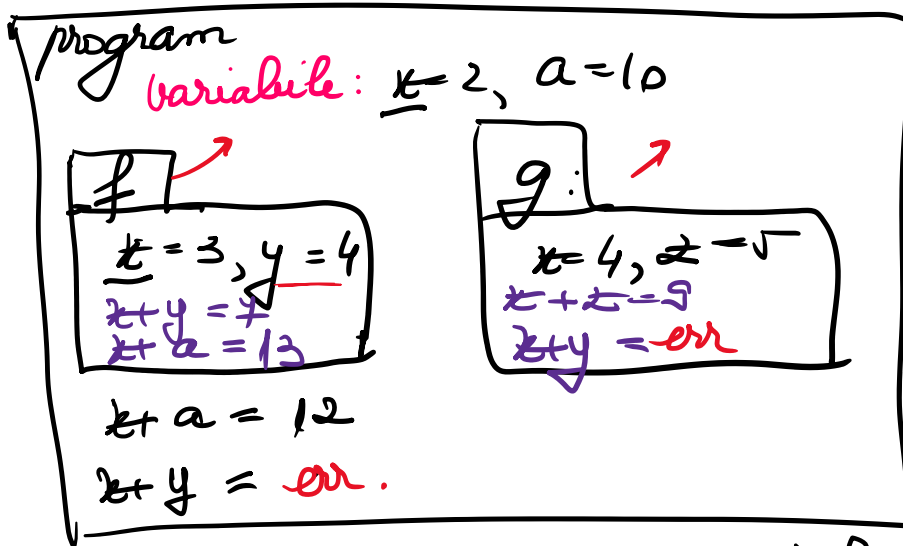 program
variabile: x = 2, a = 10
f
x = 3, y = 4
x + y = 7
x + a = 13
g:
x = 4, z = 5
x + z = 9
x + y = err
x + a = 12
x + y = err.